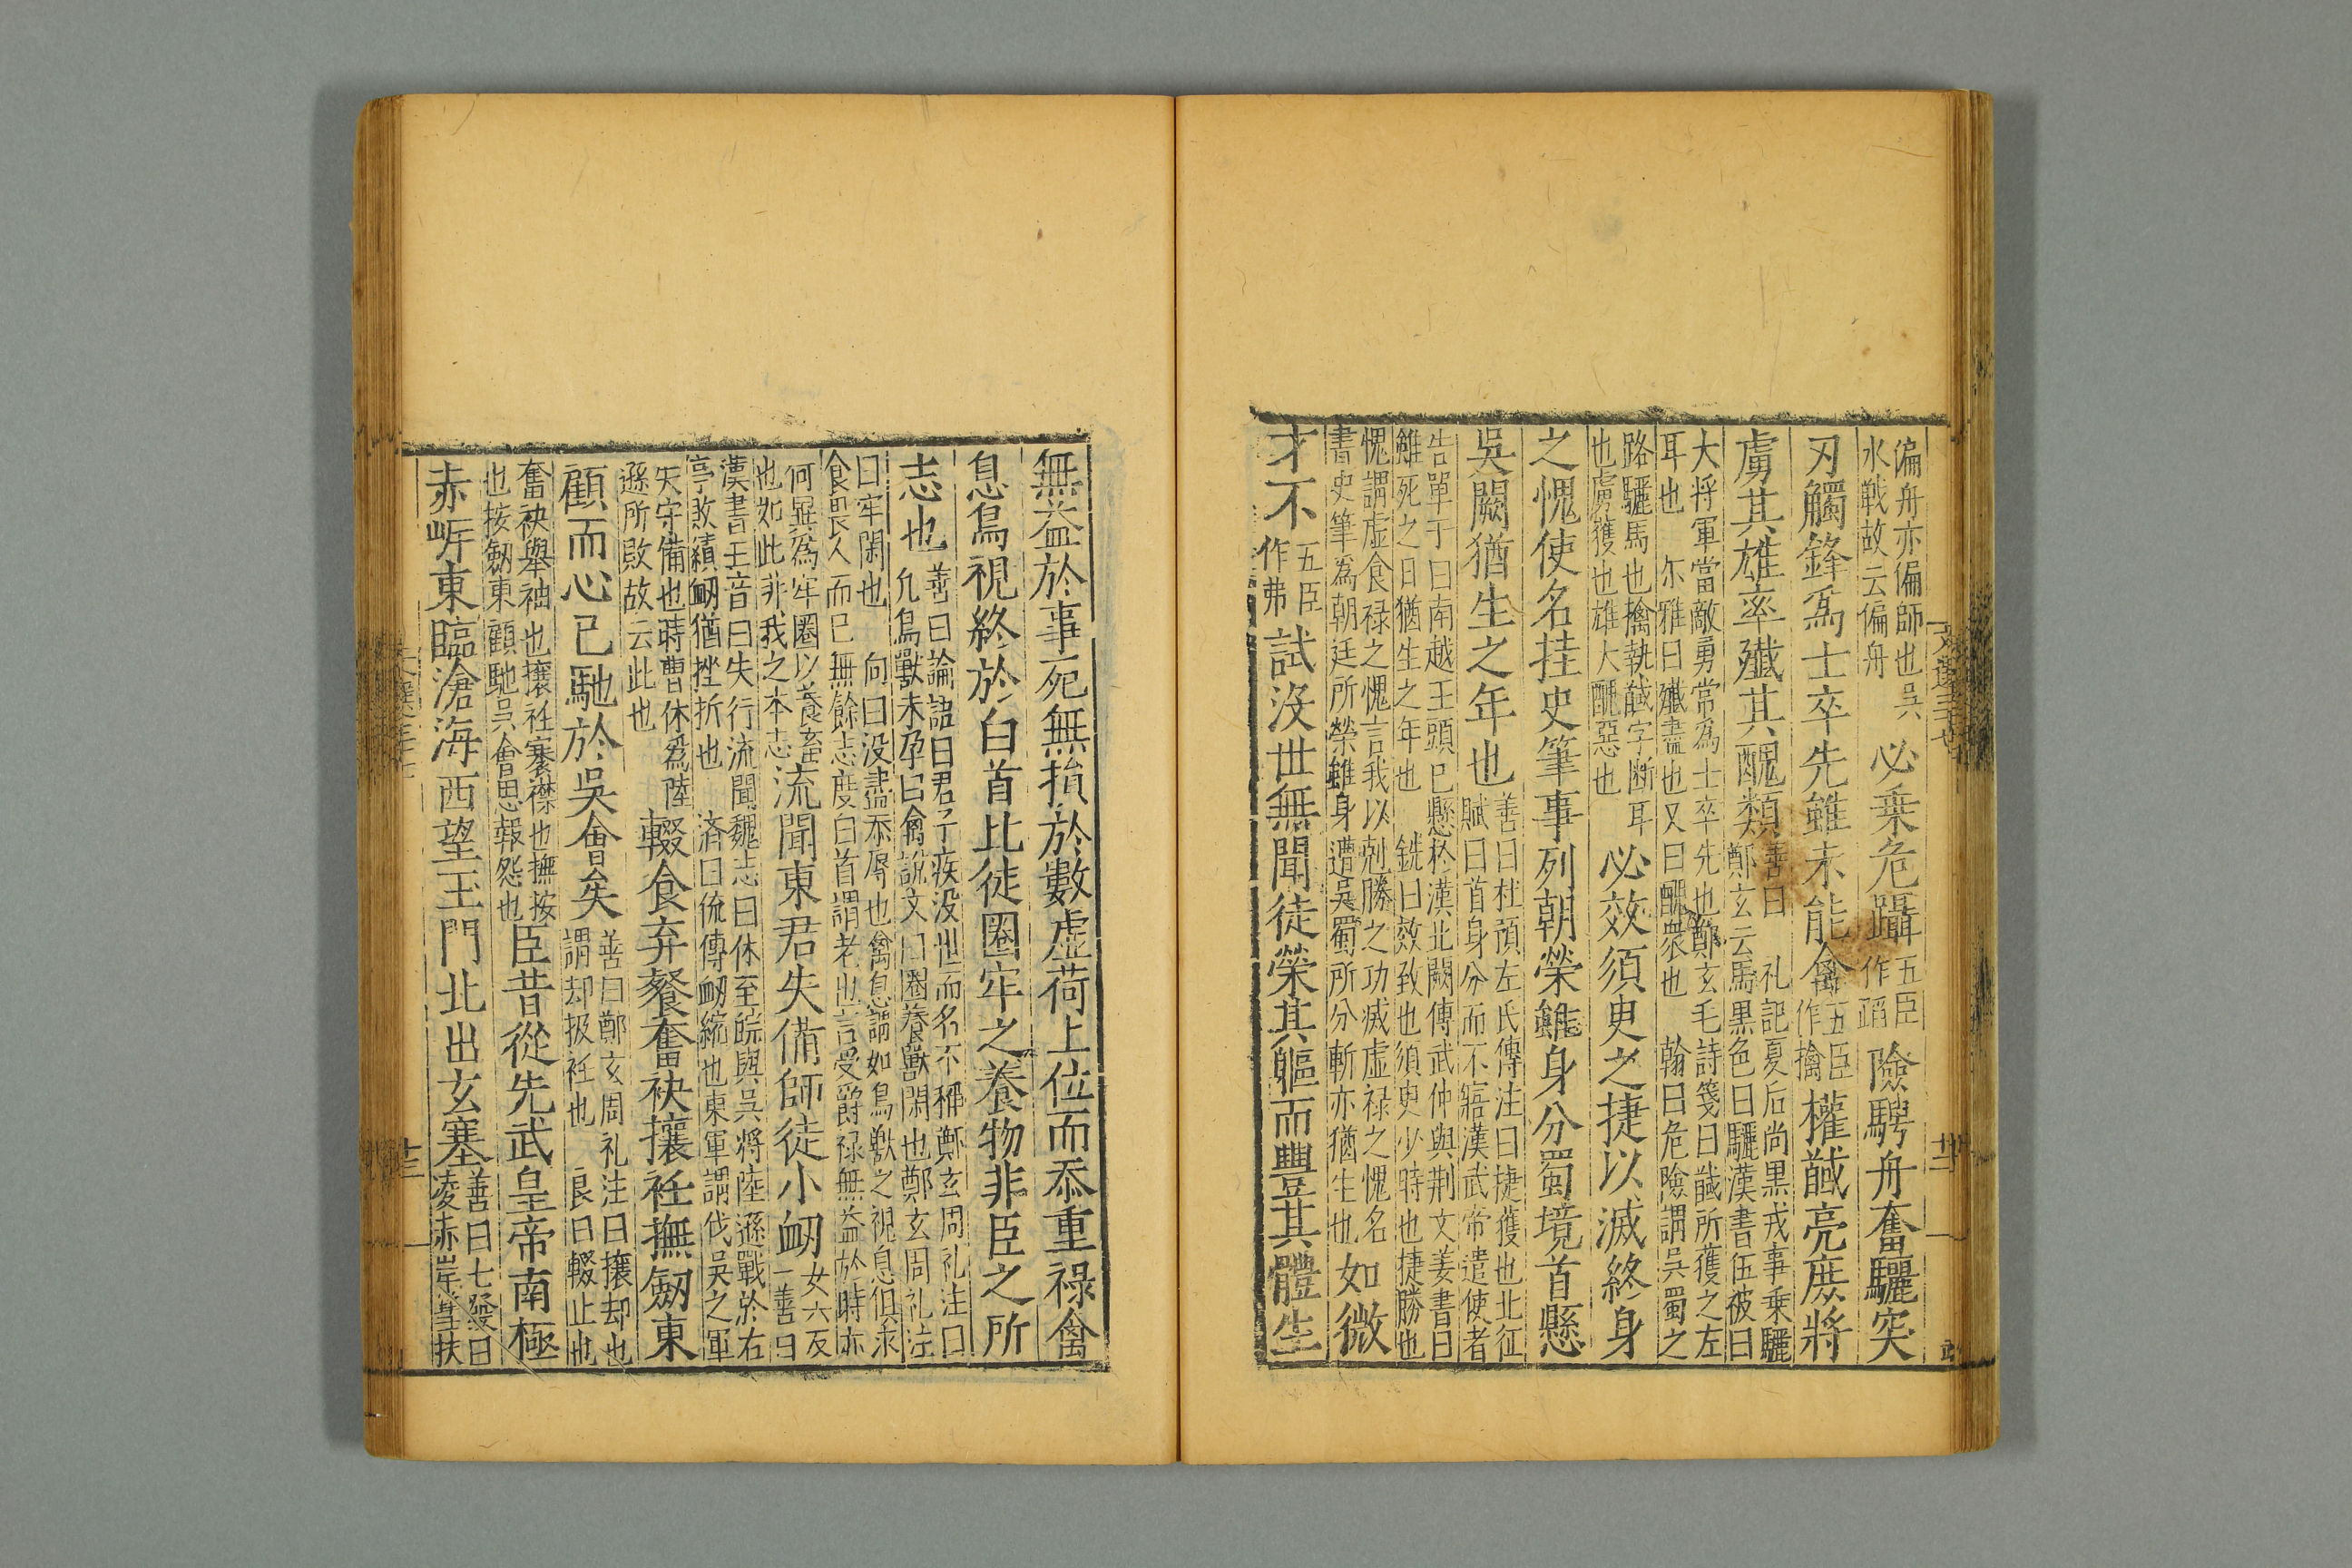 偏舟亦偏師也吳
水戰故云偏舟
必乗危躡
五臣
作蹈
險騁舟奮驪突
刃觸鋒爲士卒先雖未能禽
五臣
作擒
權馘亮庻將
虜其雄率殲其醜類
善曰 礼記夏后尚黒戎事乗驪
鄭玄云馬黒色曰驪漢書伍被曰
大将軍當敵勇常為士卒先也鄭玄毛詩箋曰馘所獲之左
耳也 尔雅曰殲盡也又曰醜衆也 翰曰危險謂吳蜀之
路驪馬也擒執馘字断耳
也虜獲也雄大醜惡也
必效須臾之捷以滅終身
之愧使名挂史筆事列朝榮雖身分蜀境首懸
吳闕猶生之年也
善曰杜預左氏傳注曰捷獲也北征
賦曰首身分而不寤漢武帝遣使者
告單于曰南越王頭已懸於漢北闕傳武仲與荆文姜書曰
雖死之日猶生之年也 銑曰效致也須臾少時也捷勝也
愧謂虚食禄之愧言我以剋勝之功滅虚禄之愧名
書史筆為朝廷所榮雖身遭吳蜀所分斬亦猶生也
如微
才不
五臣
作弗
試沒世無聞徒榮其軀而豐其體生
無益於事死無損於數虚荷上位而忝重禄禽
息鳥視終於白首此徒圈牢之養物非臣之所
志也
善曰論語曰君子疾没世而名不稱鄭玄周礼注曰
凡鳥獸未孕曰禽說文曰圈養獸閑也鄭玄周礼注
曰牢閑也 向曰没盡忝辱也禽息謂如鳥獸之視息但求
食畏人而已無餘志度白首謂老也言受爵禄無益於時亦
何異為牢圈以養畜
也如此非我之本志
流聞東君失備師徒小衂
女六反
一善曰
漢書王音曰失行流聞魏志曰休至皖與吳將陸遜戰於石
亭敗績衂猶挫折也 済曰流傳衂縮也東軍謂伐吳之軍
失守備也時曹休為陸
遜所敗故云此也
輟食弃餐奮袂攘衽撫劒東
顧而心已馳於吳會矣
善曰鄭玄周礼注曰攘却也
謂却扱衽也 良曰輟止也
奮袂舉袖也攘衽褰襟也撫按
也按劒東顧馳吳會思報怨也
臣昔從先武皇帝南極
赤岍東臨滄海西望玉門北出玄塞
善曰七發曰
凌赤岸篲扶